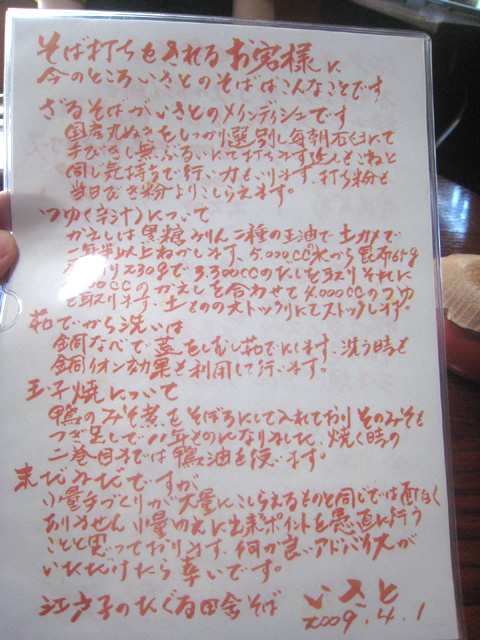 そば打ちをされるお客様に
今のところいさとのそばはこんなことです
ざるそばがいさとのメインディシュです
国産丸ぬきをしっかり選別し毎朝石臼にて
手びきし無ふるいにて打ちます
同じ気持ちで行い力もいります、打ち粉も
当日でき粉よりこしらえます。
つゆ(辛汁)について
かえしは黒糖みりん二種の正油で土ガメで
二年半以上ねかします。5,000㏄水から昆布65g
230gで3,300ccのだしを取りそれに
ccのかえしを合わせて4,000ccのつゆ
を取ります。土ものの大トックリにてストックします。
茹でから洗いは
銅なべで蓋をしむし茹でにします。洗う時も
銅イオン効果も利用して行います。
玉子焼について
鴨のみそ煮をそぼろにして入れており そのみそも
つぎ足しで八年ものになりました、焼く時の
二巻目までは鴨油を使います。
まだまだですが
少量手づくりが大量にこしらえるものと同じでは面白く
ありません 少量ゆえに出来るポイントを愚直に行う
ことと思っております、何か良いアドバイスが
いただけたら幸いです。
江戸子のたぐる田舎そば いさと
2009.4.1